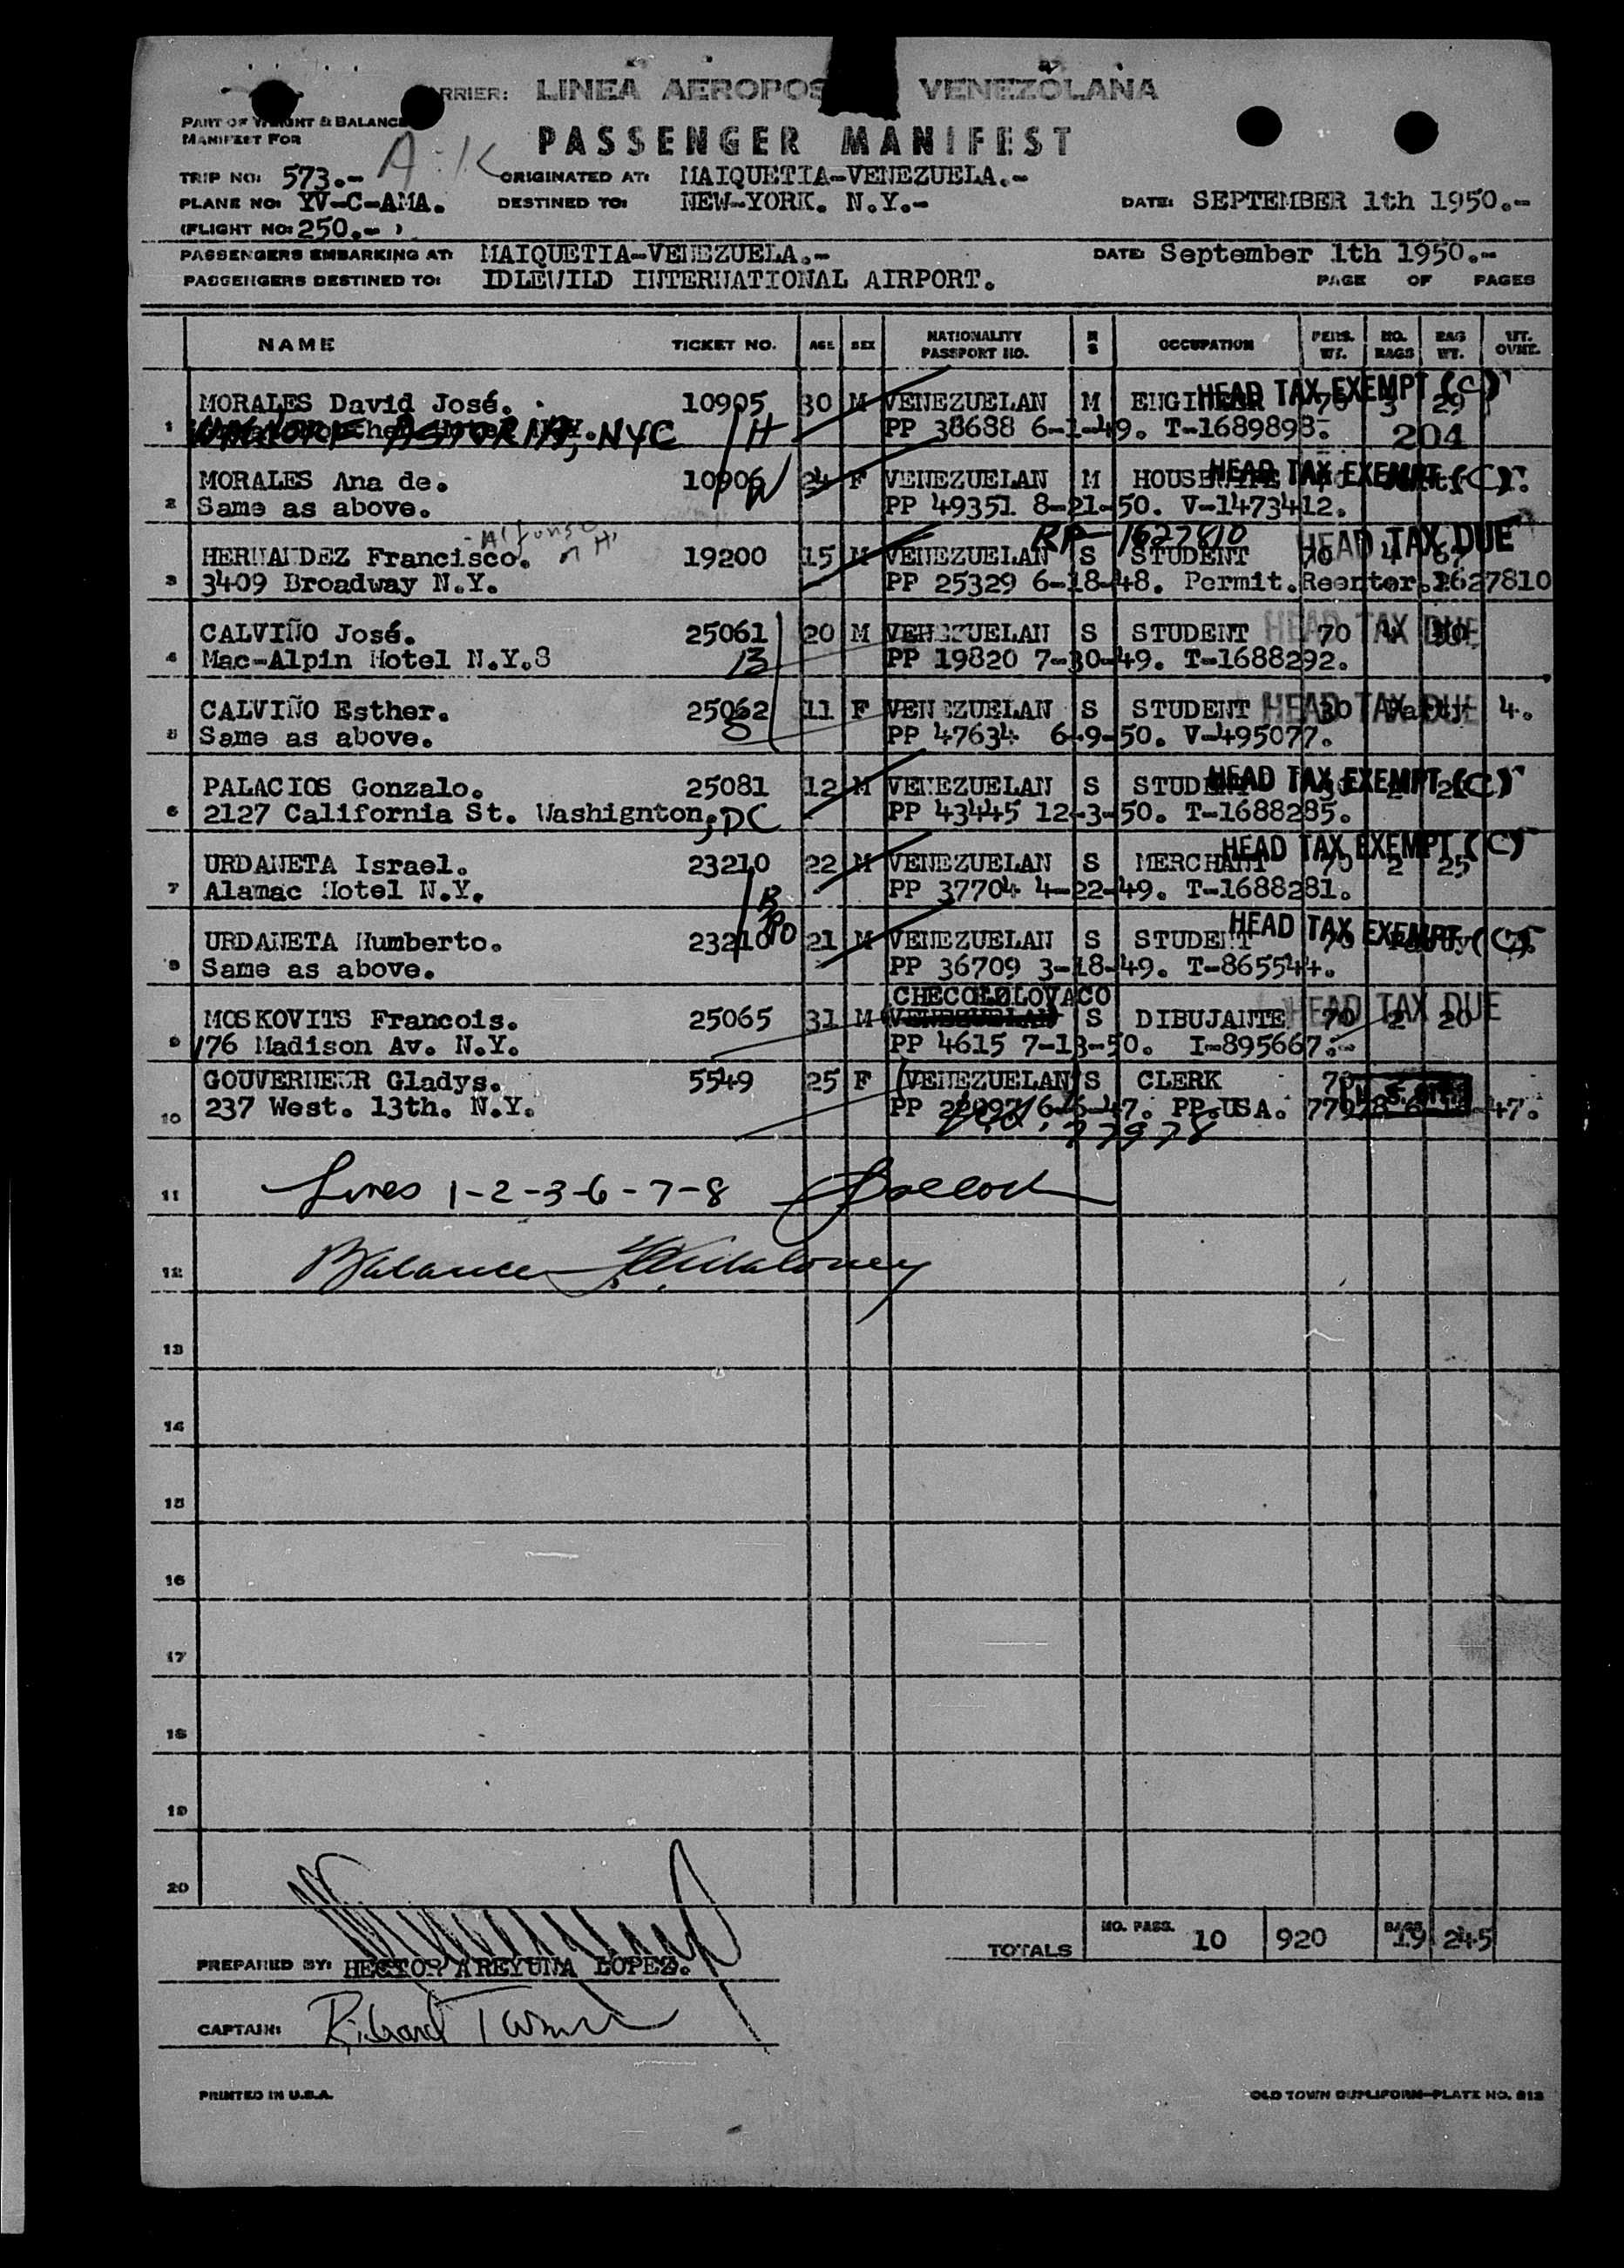 RRIER: LINEA AEROPOS VENEZOLANA
PART OF WEIGHT & BALANCE
MANIFEST FOR
A-K
PASSENGER MANIFEST
TRIP NO: 573.- ORIGINATED AT: MAIQUETIA-VENEZUELA.-
PLANE NO: YV-C-AMA. DESTINED TO: NEW-YORK. N.Y.- DATE: SEPTEMBER 1th 1950.-
(FLIGHT NO: 250.- )
PASSENGERS EMBARKING AT: MAIQUETIA-VENEZUELA.- DATE: September 1th 1950.-
PASSENGERS DESTINED TO: IDLEWILD INTERNATIONAL AIRPORT. PAGE OF PAGES
NAME TICKET NO. AGE SEX NATIONALITY PASSPORT NO. M S OCCUPATION PERS. WT. NO. BAGS BAG WT. WT. OVNE.
MORALES David José. 10905 30 M VENEZUELAN M ENGINEER 70 3 29 HEAD TAX EXEMPT (C)
1 ASTORIA, NYC H PP 38688 6-1-49. T-1689898. 204
MORALES Ana de. 10906 W 24 F VENEZUELAN M HOUSEWIFE HEAD TAX EXEMPT (C)
2 Same as above. PP 49351 8-21-50. V-1473412.
Alfonso RP-1627810
HERNANDEZ Francisco. 19200 15 M VENEZUELAN S STUDENT 70 4 HEAD TAX DUE
3 3409 Broadway N.Y. PP 25329 6-18-48. Permit.Reenter.1627810
CALVIÑO José. 25061 20 M VENEZUELAN S STUDENT 70 HEAD TAX DUE
4 Mac-Alpin Hotel N.Y.S 13 PP 19820 7-30-49. T-1688292.
CALVIÑO Esther. 25062 11 F VENEZUELAN S STUDENT HEAD TAX DUE 4.
5 Same as above. PP 47634 6-9-50. V-495077.
PALACIOS Gonzalo. 25081 12 M VENEZUELAN S STUDENT HEAD TAX EXEMPT (C)
6 2127 California St. Washignton., DC PP 43445 12-3-50. T-1688285.
URDANETA Israel. 23210 22 M VENEZUELAN S MERCHANT 70 2 25 HEAD TAX EXEMPT (C)
7 Alamac Hotel N.Y. PP 37704 4-22-49. T-1688281.
URDANETA Humberto. 23210 21 M VENEZUELAN S STUDENT 70 HEAD TAX EXEMPT (C)
8 Same as above. PP 36709 3-18-49. T-865544.
CHECOLOLOVACO
MOSKOVITS Francois. 25065 31 M VENEZUELAN S DIBUJANTE 70 2 20 HEAD TAX DUE
9 176 Madison Av. N.Y. PP 4615 7-13-50. I-895667.-
GOUVERNEUR Gladys. 5549 25 F VENEZUELAN S CLERK
10 237 West. 13th. N.Y. PP 6-6-47. PP.USA. 77978
77978
11 Lines 1-2-3-6-7-8
12 Balance
13
14
15
16
17
18
19
20
TOTALS NO. PASS. 10 920 BAGS 19 245
PREPARED BY: HECTOR AREYUNA LOPEZ.
CAPTAIN: Richard
PRINTED IN U.S.A. OLD TOWN DUPLIFORM-PLATE NO. 212